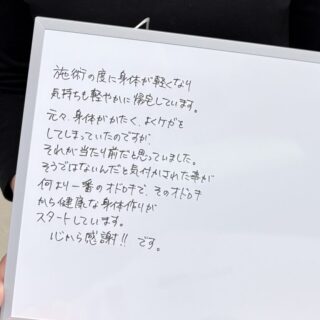 施術の度に身体が軽くなり
気持ちも軽やかに帰宅しています。
元々、身体がかたく、よくケガを
してしまっていたのですが、
それが当たり前だと思っていました。
そうではないんだと気付かされた事が
何より一番のオドロキで、そのオドロキ
から健康な身体作りが
スタートしています。
心から感謝!! です。